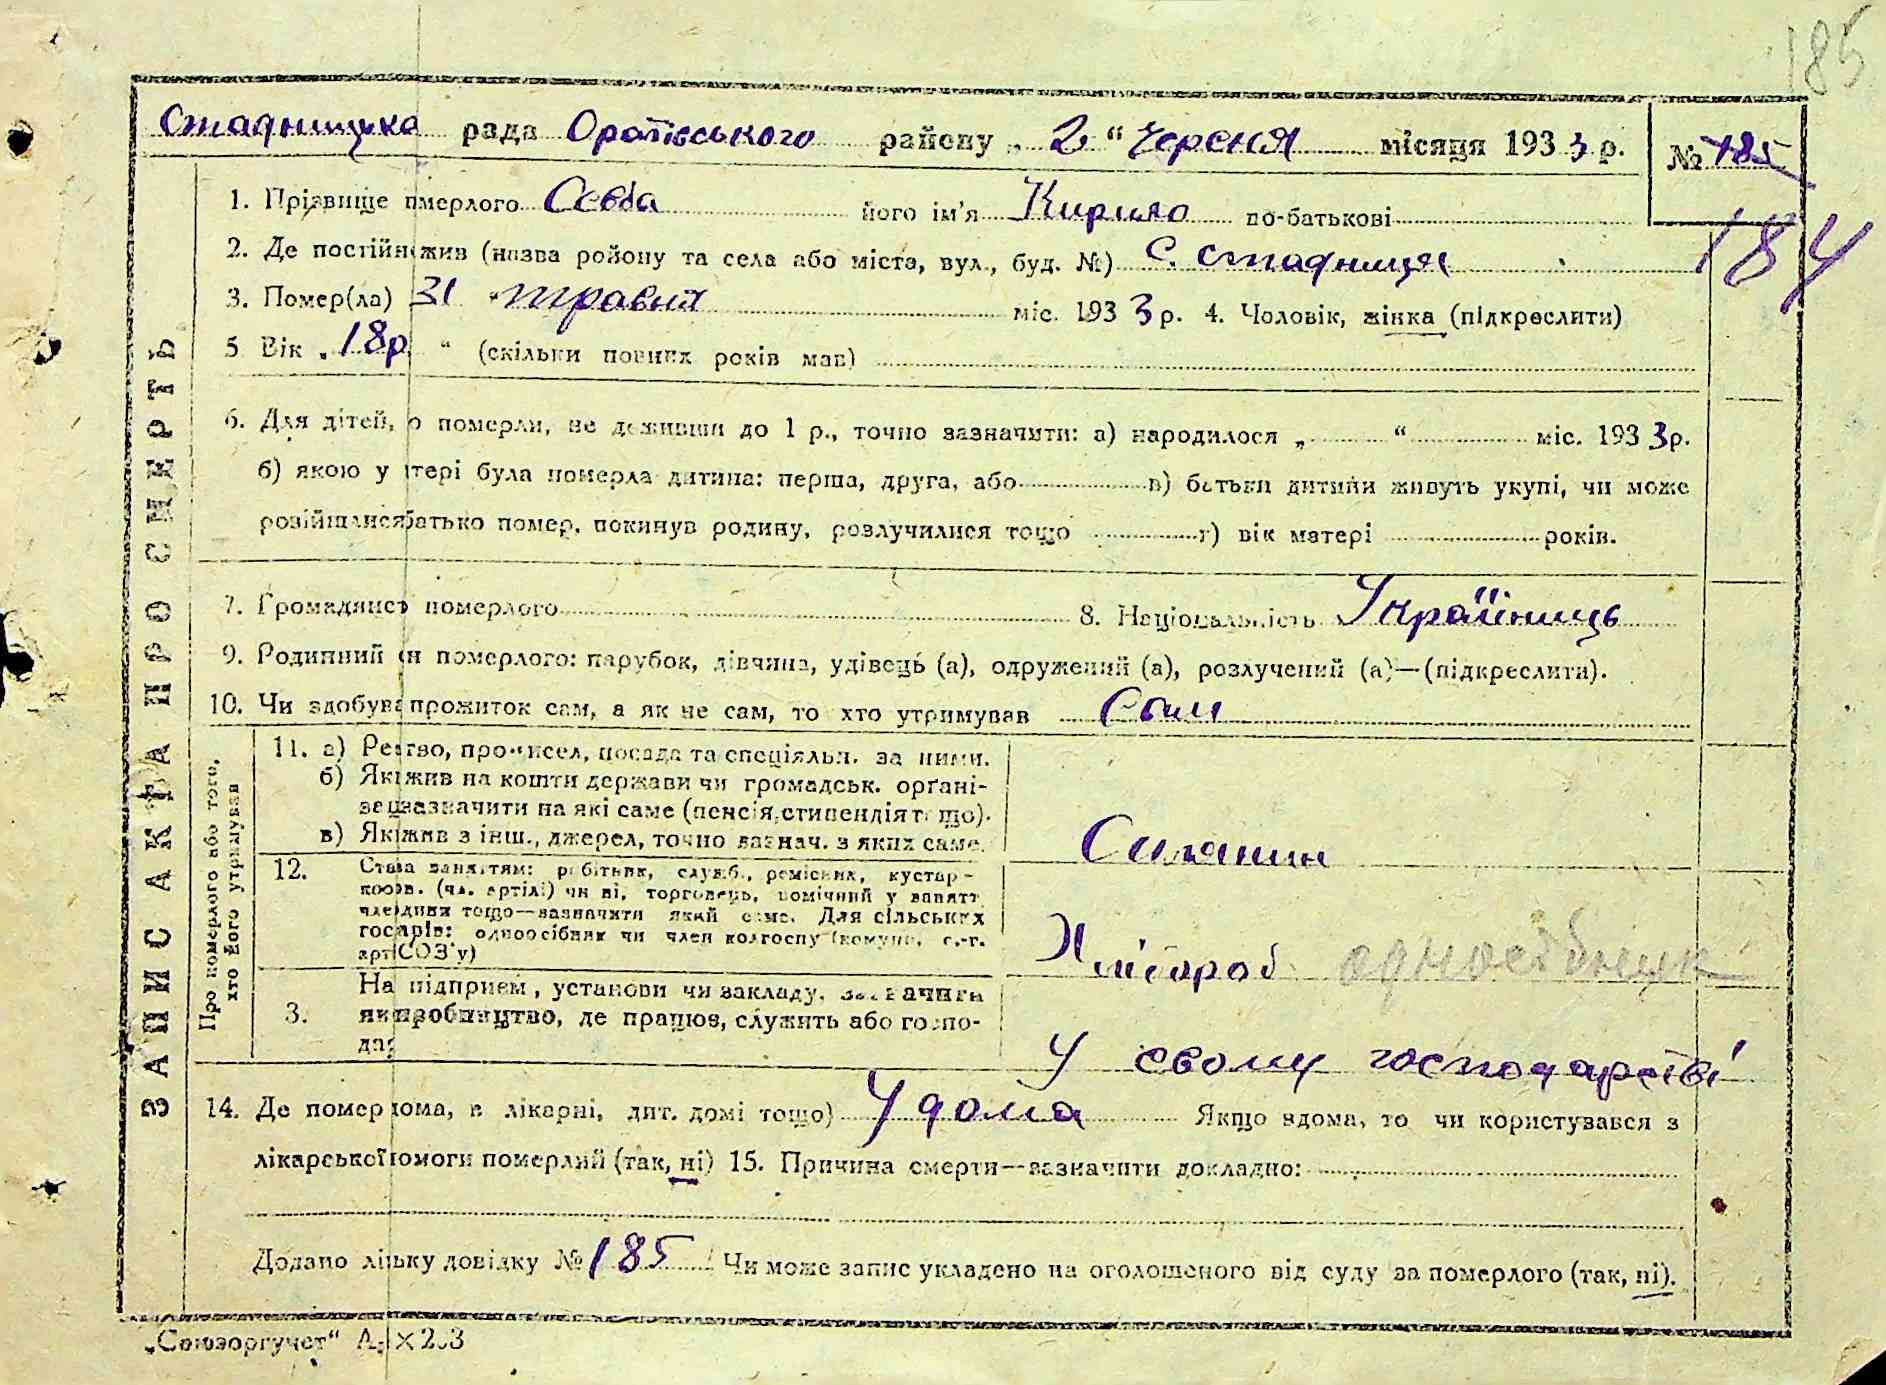 185
Стадницька рада Оратівського району „ 2 “ Червня місяця 1933 р.
№ 185
184
ЗАПИС АКТА ПРО СМЕРТЬ
1. Прізвище пмерлого Севба його ім'я Кирило по-батькові
2. Де постійн жив (назва району та села або міста, вул., буд. №) с. Стадниця
3. Помер(ла) 31 “ травня міс. 1933 р. 4. Чоловік, жінка (підкреслити)
5 Вік „ 18р “ (скільки повних років мав)
6. Для дітей, о померли, не доживши до 1 р., точно зазначити: а) народилося „ “ міс. 1933р.
б) якою у тері була померла дитина: перша, друга, або в) батьки дитини живуть укупі, чи може
розійшлися батько помер, покинув родину, розлучилися тощо г) вік матері років.
7. Громадянст померлого 8. Національність Україниць
9. Родинний н померлого: парубок, дівчина, удівець (а), одружений (а), розлучений (а)—(підкреслити).
10. Чи здобува прожиток сам, а як не сам, то хто утримував Сам
Про померлого або того, хто його утримував
11. а) Ре тво, про исел, посада та спеціяльн. за ними.
б) Як жив на кошти держави чи громадськ. орґані-
зац зазначити на які саме (пенсія, стипендія тощо).
в) Як жив з інш., джерел, точно зазнач. з яких саме.
Силянин
12. Ста за заняттям: робітник, служб., ремісник, кустар-
(чл. артілі) чи ні, торговець, помічний у занятт
тощо—зазначити який саме. Для сільських
госп рів: одноосібник чи член колгоспу (комуни, с.-г.
арт СОЗ'у)
Хлібороб одноосібницк
3. На підприєм, установи чи закладу, зазначити
як виробництво, де працює, служить або госпо-
да
У свому господарстві
14. Де помер дома, в лікарні, дит. домі тощо) У дома Якщо вдома, то чи користувався з
лікарської помоги померлий (так, ні) 15. Причина смерти—зазначити докладно:
Додано лі ьку довідку № 185 Чи може запис укладено на оголошеного від суду за померлого (так, ні).
„Союзоргучет“ А₅ × 203